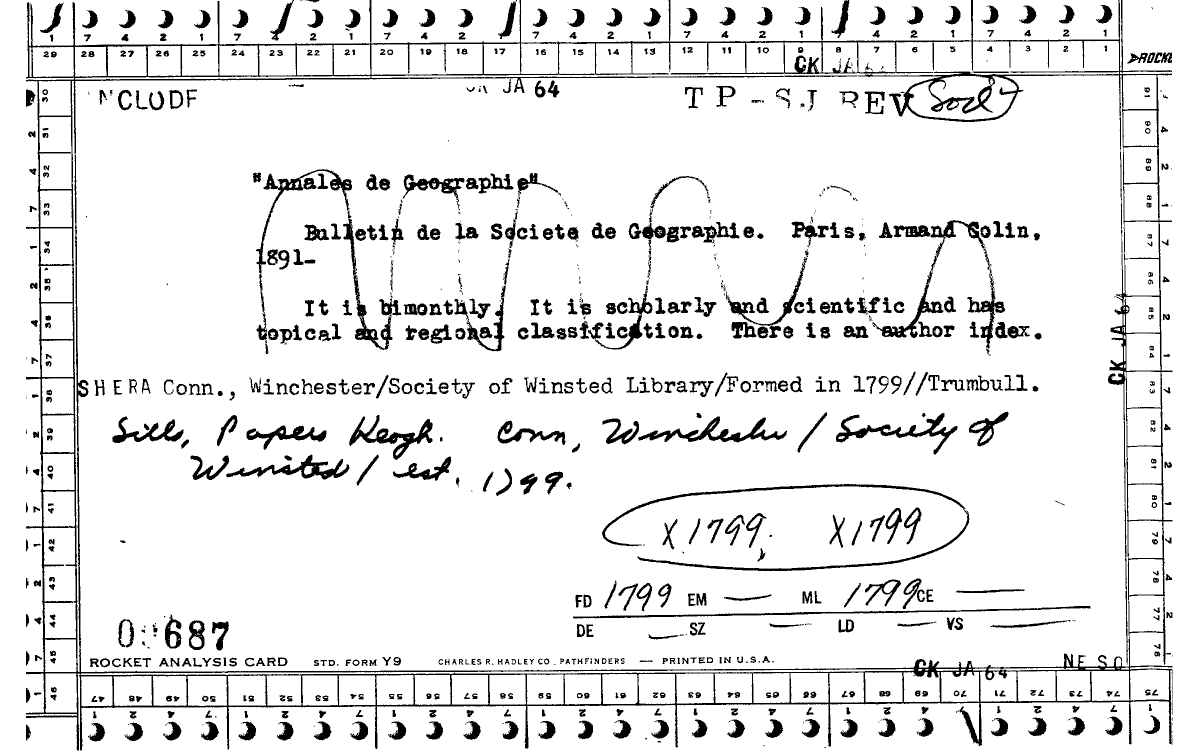 7 4 2 1 7 4 2 1 7 4 2 1 7 4 2 1 7 4 2 1 7 4 2 1 7 4 2 1
29 28 27 26 25 24 23 22 21 20 19 18 17 16 15 14 13 12 11 10 9 8 7 6 5 4 3 2 1
CK JA 64
NCLUDE JA 64 TP-SJ REV
"Annales de Geographie"
Bulletin de la Societe de Geographie. Paris, Armand Colin,
1891-
It is bimonthly. It is scholarly and scientific and has
topical and regional classification. There is an author index.
CK JA 64
SHERA Conn., Winchester/Society of Winsted Library/Formed in 1799//Trumbull.
Sills, Papers Keogh. Conn, Winchester / Society of
Winsted / est. 1799.
X1799. X1799
FD 1799 EM — ML 1799 CE —
DE — SZ — LD — VS —
687
ROCKET ANALYSIS CARD STD. FORM Y9 CHARLES R. HADLEY CO. PATHFINDERS — PRINTED IN U.S.A.
CK JA 64 NE SO
46 47 48 49 50 51 52 53 54 55 56 57 58 59 60 61 62 63 64 65 66 67 68 69 70 71 72 73 74 75